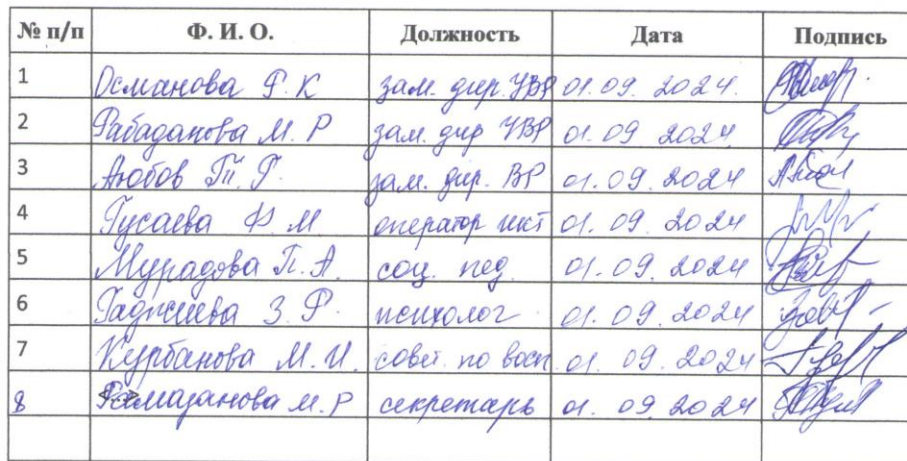 № п/п Ф. И. О. Должность Дата Подпись
1 Османова Р. К зам. дир УВР 01.09.2024.
2 Рабаданова М. Р зам. дир УВР 01.09 2024.
3 Аюбов Г. зам. дир. ВР 01.09.2024
4 Гусаева Ф. М оператор икт 01.09.2024
5 Мурадова П. А. соц. пед. 01.09.2024
6 Гаджиева З. Р. психолог 01.09.2024
7 Курбанова М. И. совет. по восп. 01.09.2024
8 Рамазанова М. Р секретарь 01.09.2024